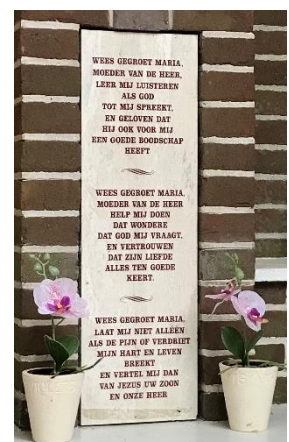 WEES GEGROET MARIA,
MOEDER VAN DE HEER,
LEER MIJ LUISTEREN
ALS GOD
TOT MIJ SPREEKT,
EN GELOVEN DAT
HIJ OOK VOOR MIJ
EEN GOEDE BOODSCHAP
HEEFT
WEES GEGROET MARIA,
MOEDER VAN DE HEER
HELP MIJ DOEN
DAT WONDERE
DAT GOD MIJ VRAAGT,
EN VERTROUWEN
DAT ZIJN LIEFDE
ALLES TEN GOEDE
KEERT.
WEES GEGROET MARIA,
LAAT MIJ NIET ALLÉÉN
ALS DE PIJN OF VERDRIET
MIJN HART EN LEVEN
BREEKT
EN VERTEL MIJ DAN
VAN JEZUS UW ZOON
EN ONZE HEER